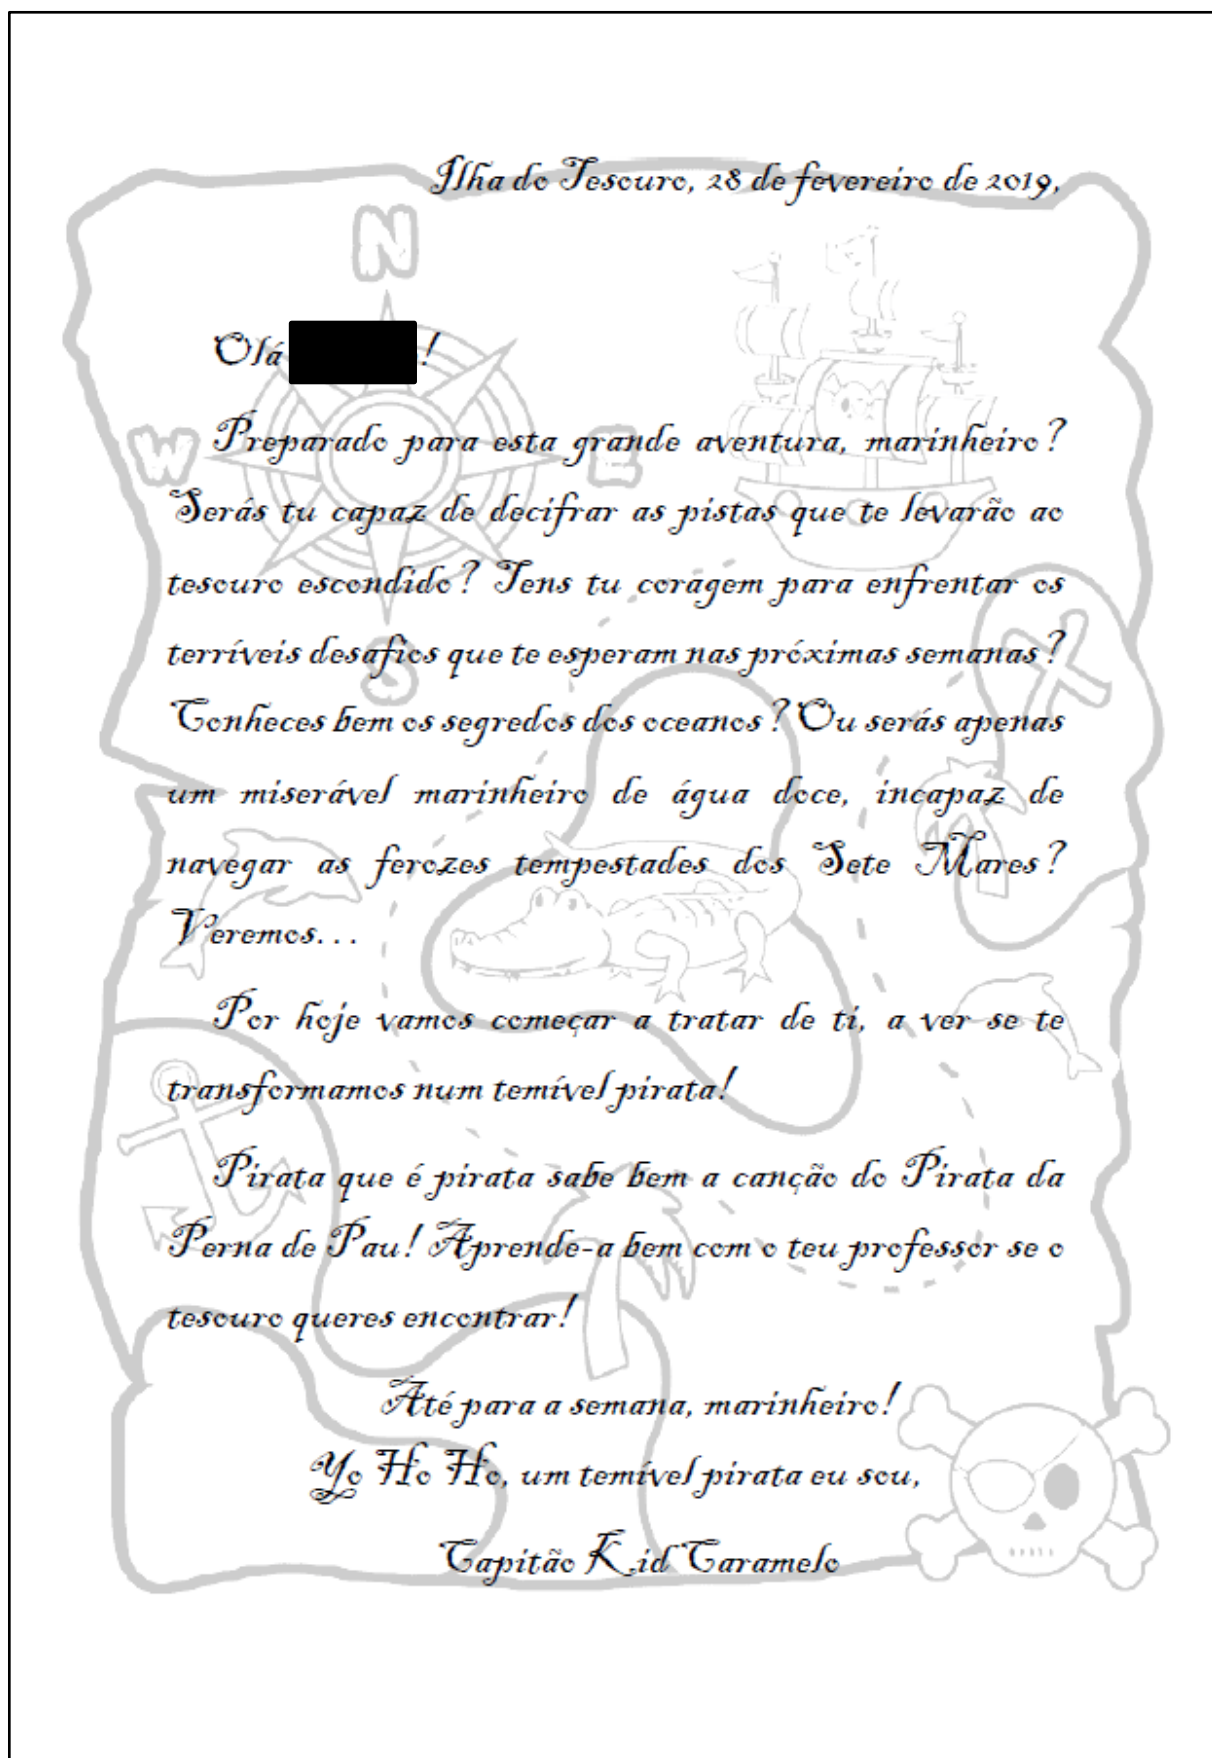 Ilha do Tesouro, 28 de fevereiro de 2019,
N
Olá !
W
E
Preparado para esta grande aventura, marinheiro?
Serás tu capaz de decifrar as pistas que te levarão ao
tesouro escondido? Tens tu coragem para enfrentar os
terríveis desafios que te esperam nas próximas semanas?
S
Conheces bem os segredos dos oceanos? Ou serás apenas
um miserável marinheiro de água doce, incapaz de
navegar as ferozes tempestades dos Sete Mares?
Veremos...
Por hoje vamos começar a tratar de ti, a ver se te
transformamos num temível pirata!
Pirata que é pirata sabe bem a canção do Pirata da
Perna de Pau! Aprende-a bem com o teu professor se o
tesouro queres encontrar!
Até para a semana, marinheiro!
Yo Ho Ho, um temível pirata eu sou,
Capitão Kid Caramelo